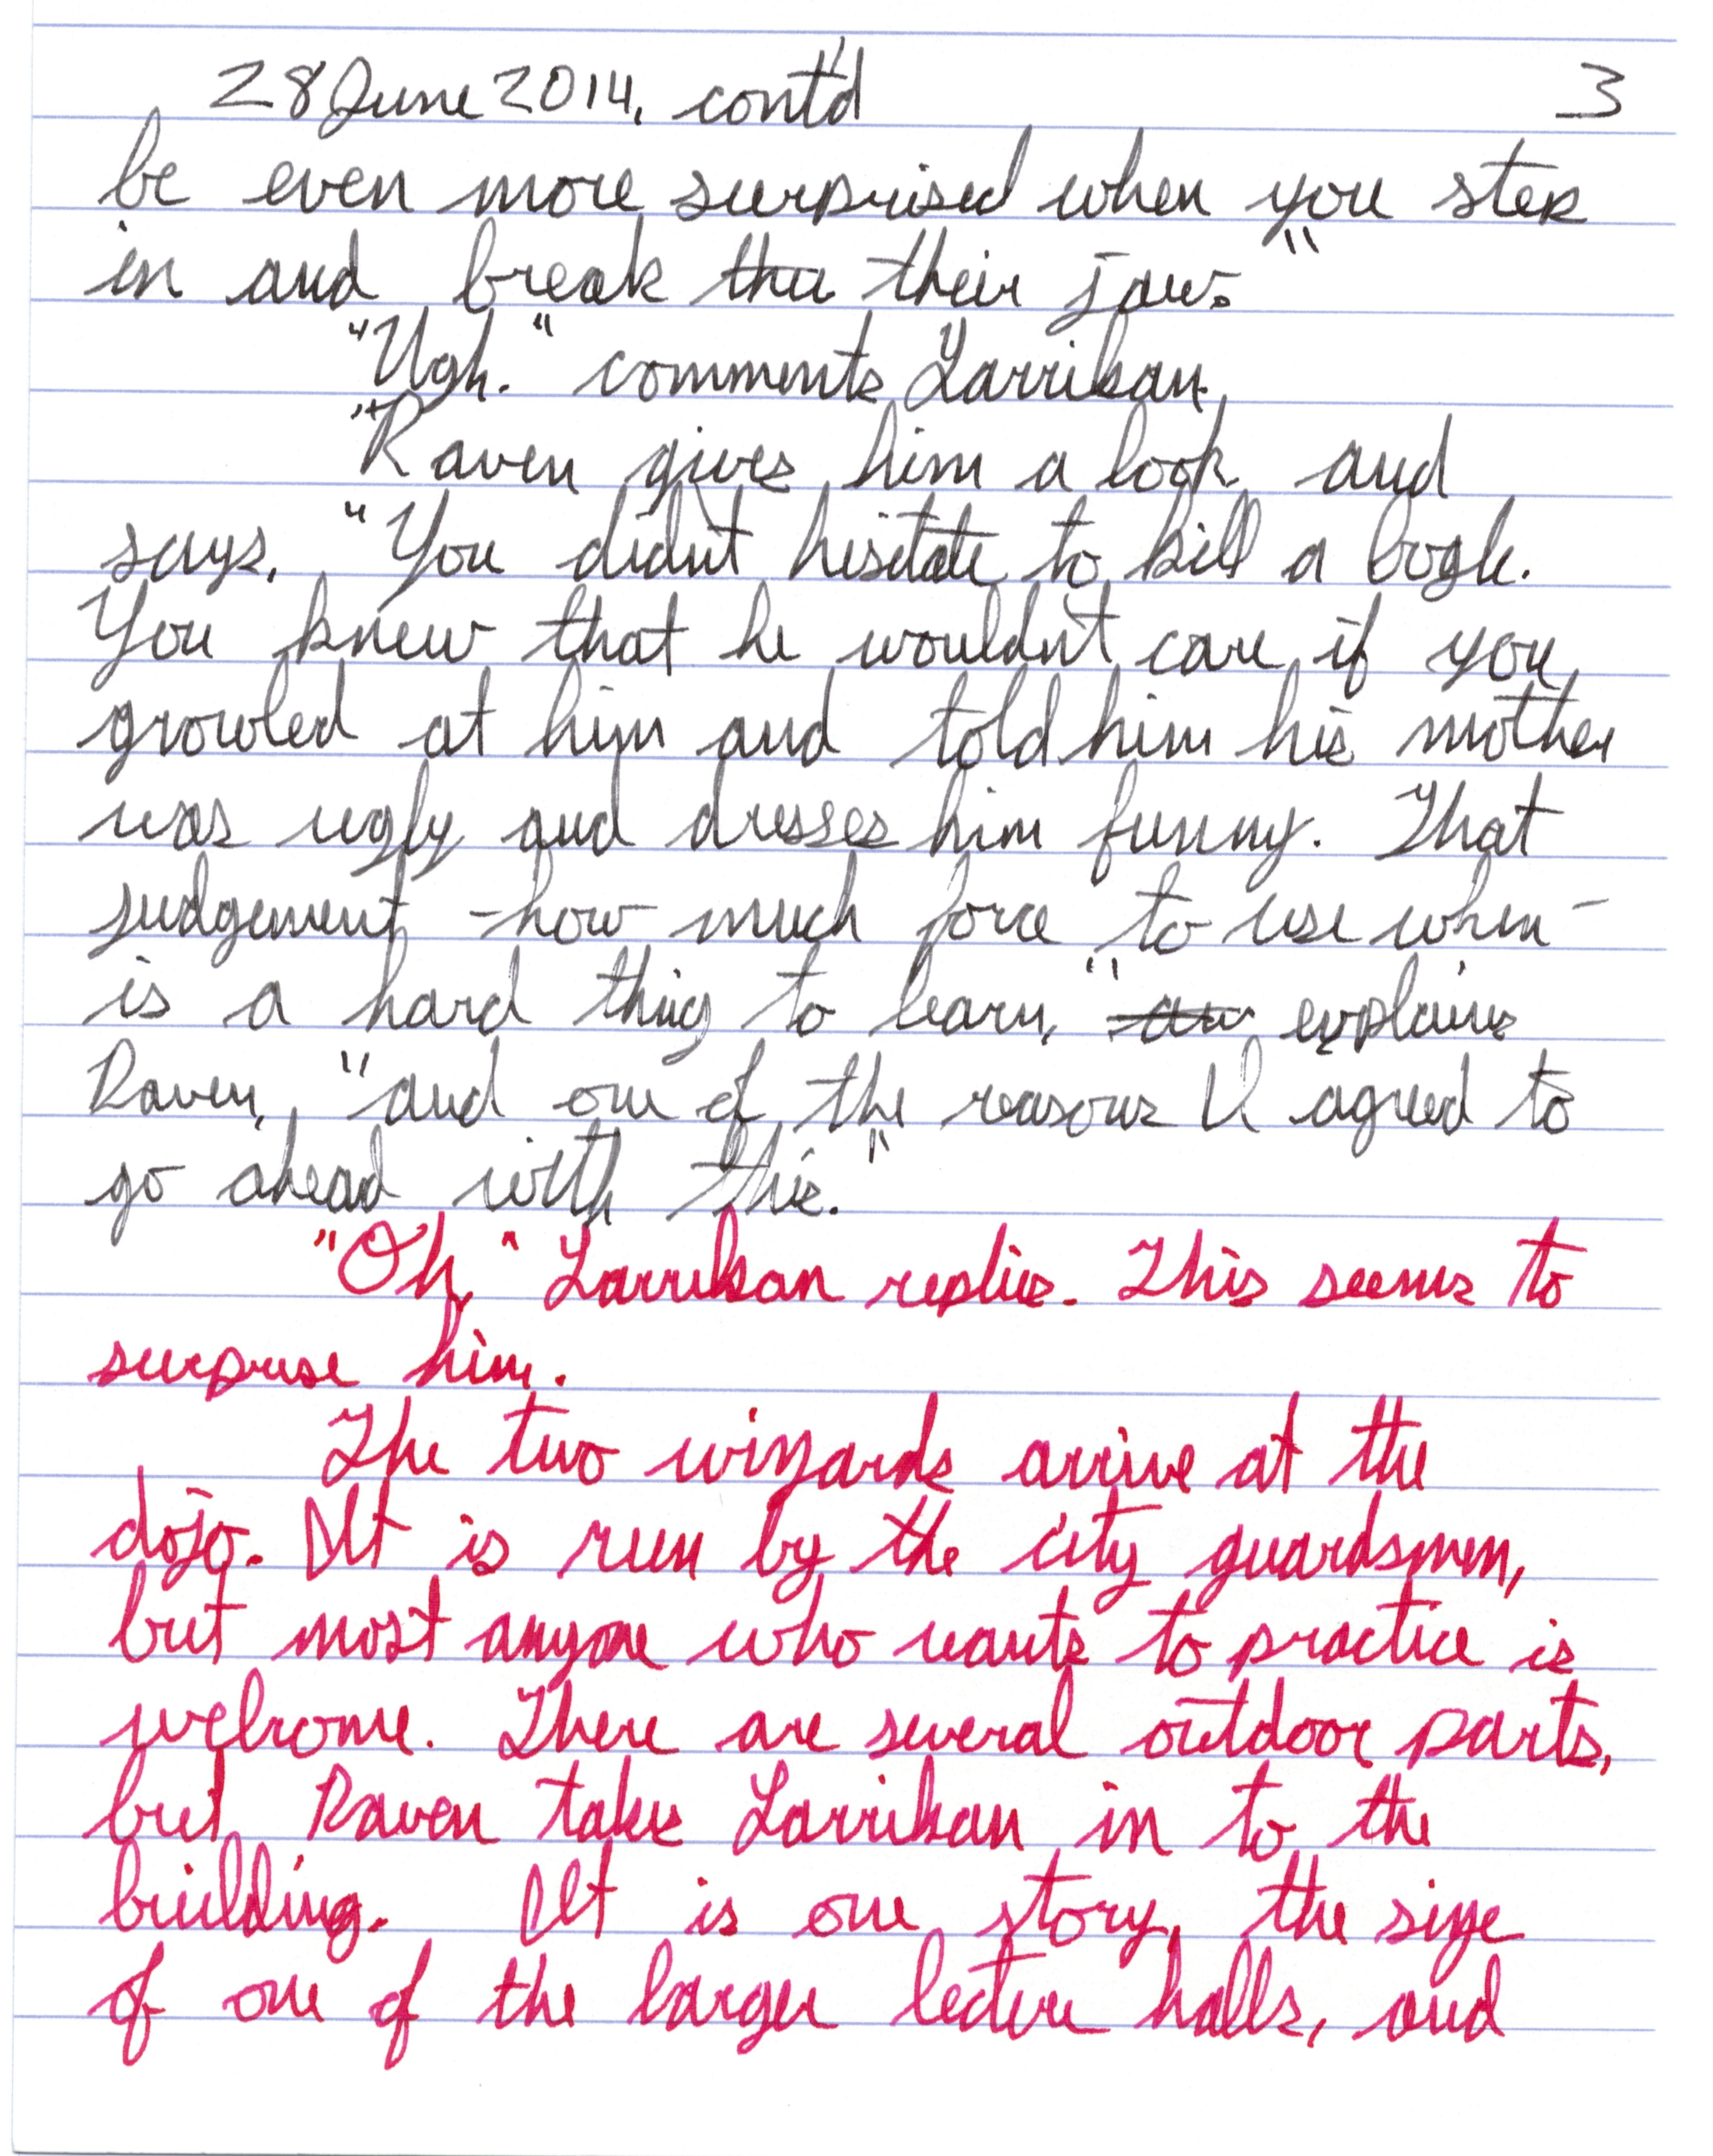 28 June 2014, cont'd 3
be even more surprised when you step
in and break ~~thei~~ their jaw."
"Ugh." comments Larrikan.
"Raven gives him a look and
says, "You didn't hesitate to kill a bogle.
You knew that he wouldn't care if you
growled at him and told him his mother
was ugly and dresses him funny. That
judgement -how much force to use when-
is a hard thing to learn," explains
Raven, "and one of the reasons I agreed to
go ahead with this."
"Oh," Larrikan replies. This seems to
surprise him.
The two wizards arrive at the
dojo. It is run by the city guardsmen,
but most anyone who wants to practice is
welcome. There are several outdoor parts,
but Raven takes Larrikan in to the
building. It is one story, the size
of one of the larger lecture halls, and